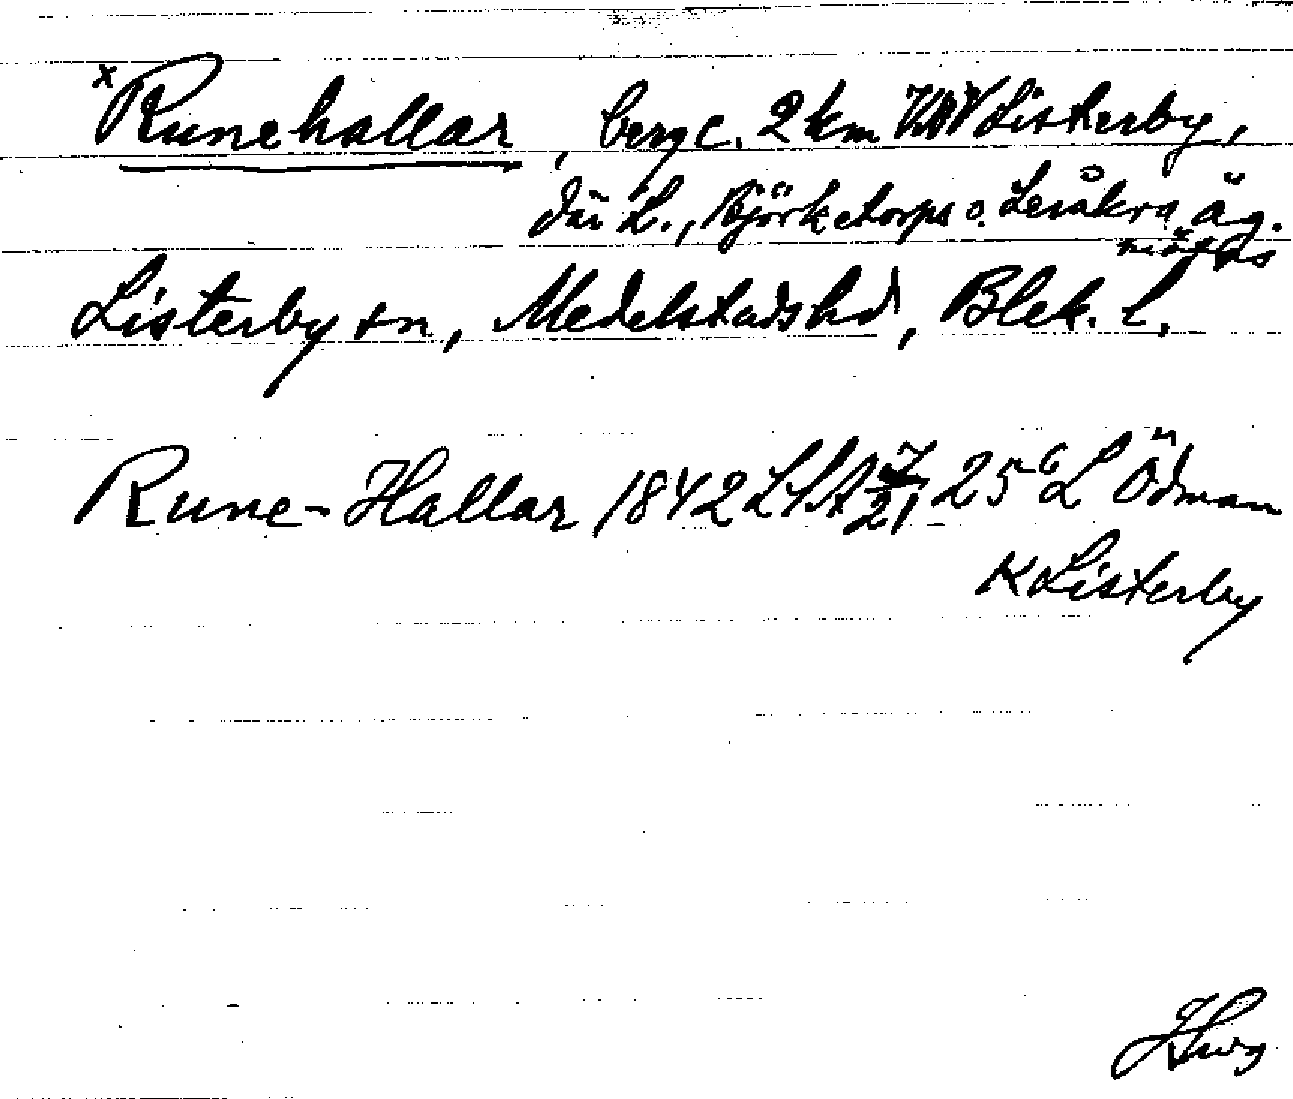 x Runehallar, berg c. 2 km VNV Listerby,
där L., Björketorps o. Leråkra äg.
mötas
Listerby sn, Medelstads hd, Blek. l.
Rune-Hallar 1842 LSA 25 6 L Ödman
K Listerby